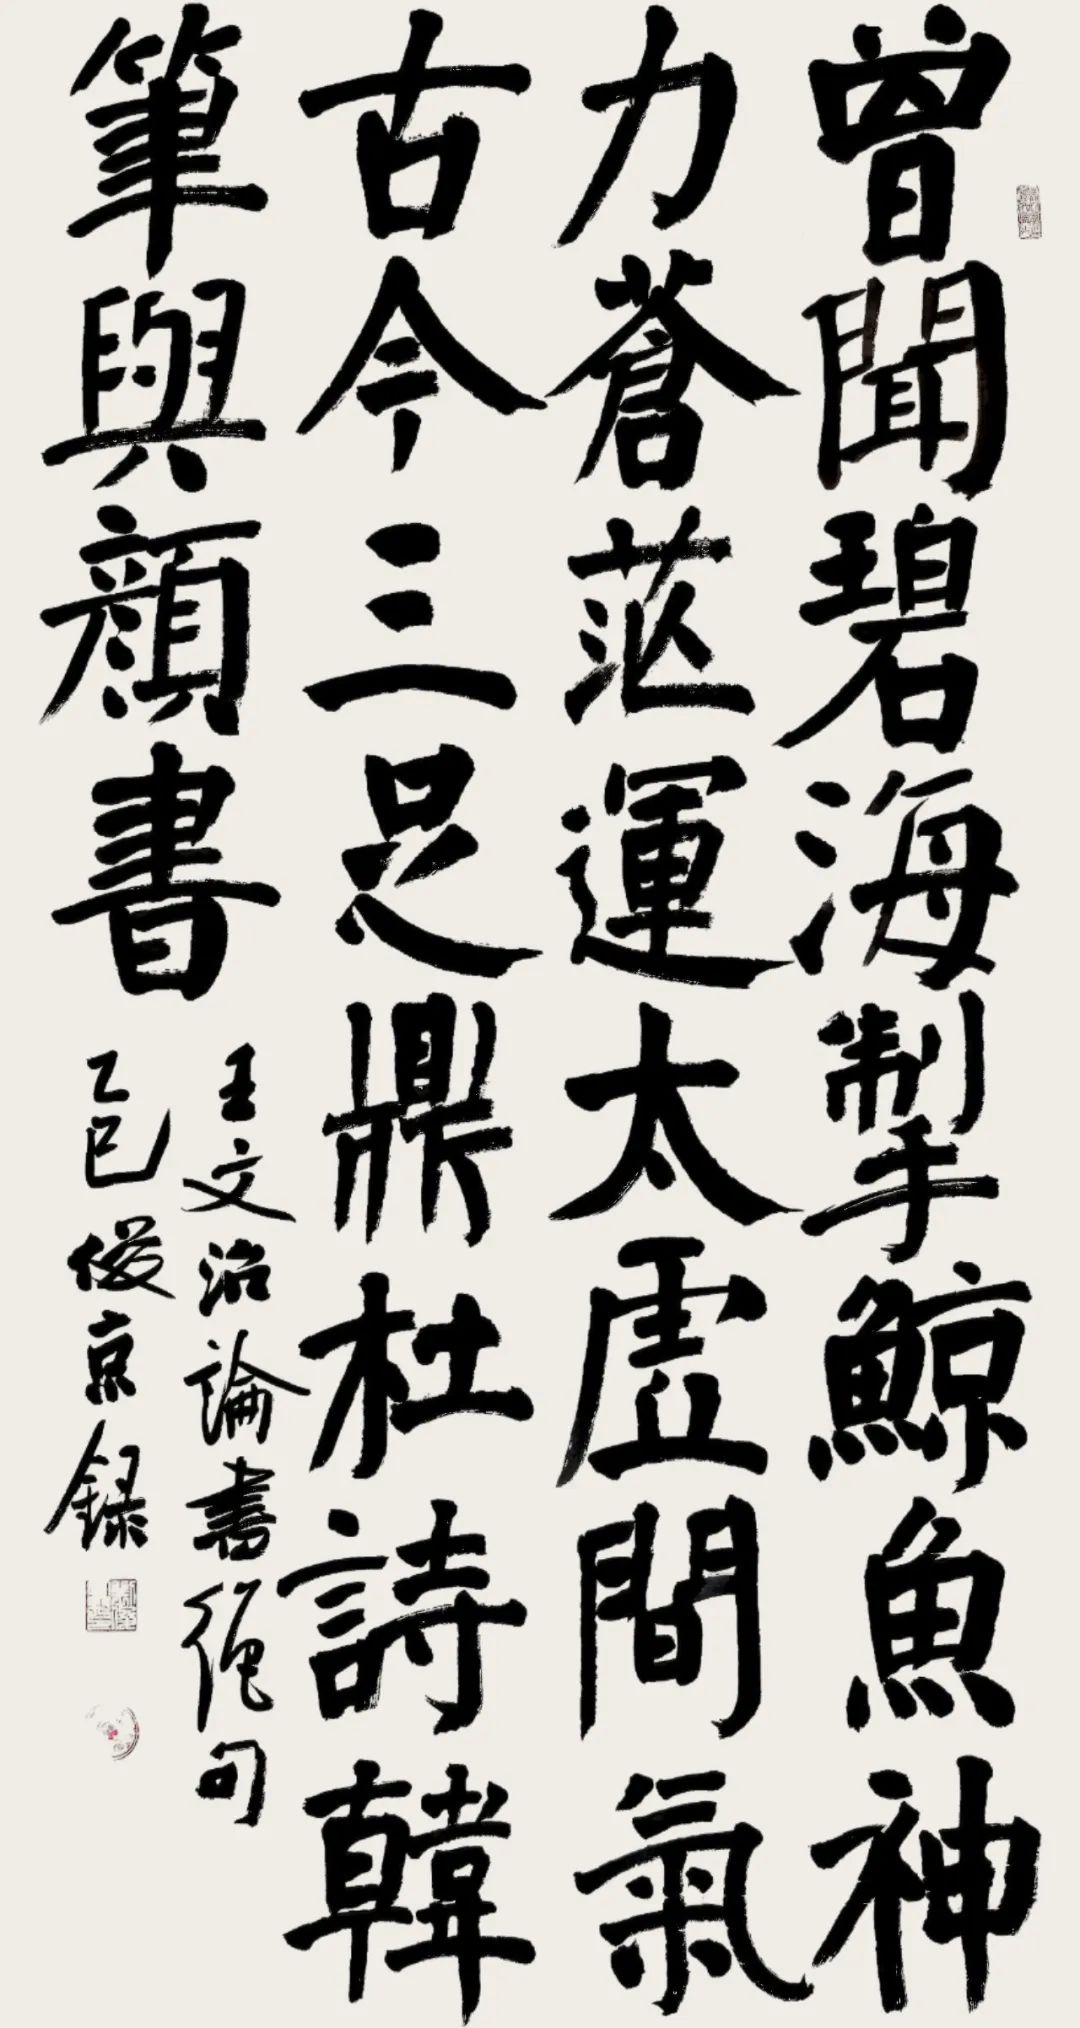 曾聞碧海掣鯨魚神
力蒼茫運太虛間氣
古今三足鼎杜詩韓
筆與顏書
王文治論書絕句
乙巳俊京錄